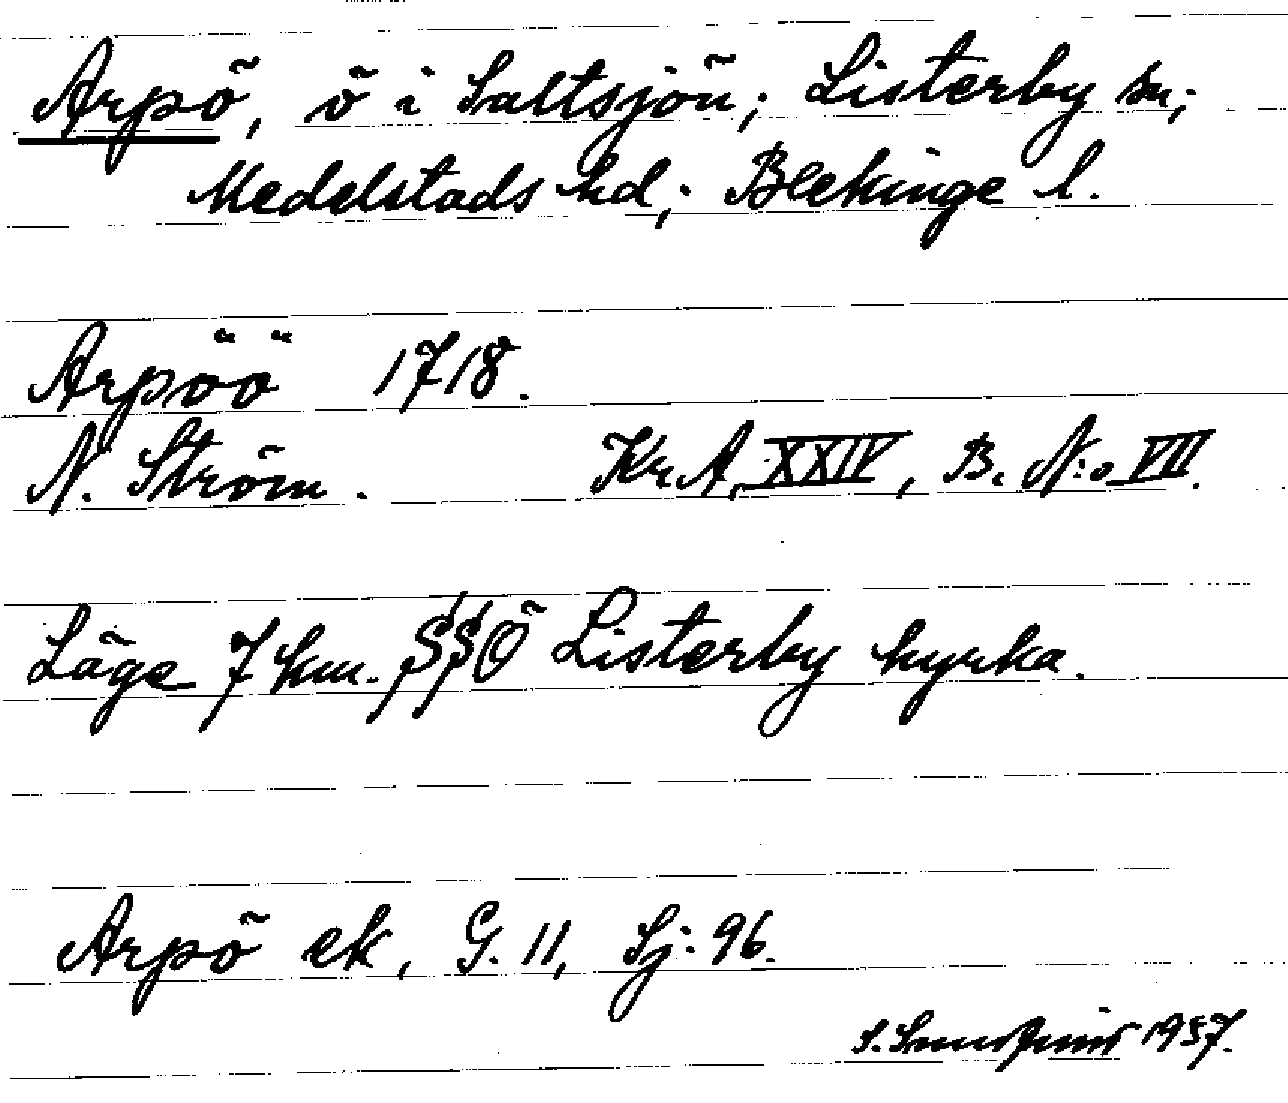 Arpö, ö i Saltsjön; Listerby sn;
Medelstads hd; Blekinge l.
Arpöö 1718.
N. Ström. Kr. A, XXIV, B. N:o VII.
Läge 7 km. SSÖ Listerby kyrka.
Arpö ek, G. 11, Sj: 96.
S. 1957.